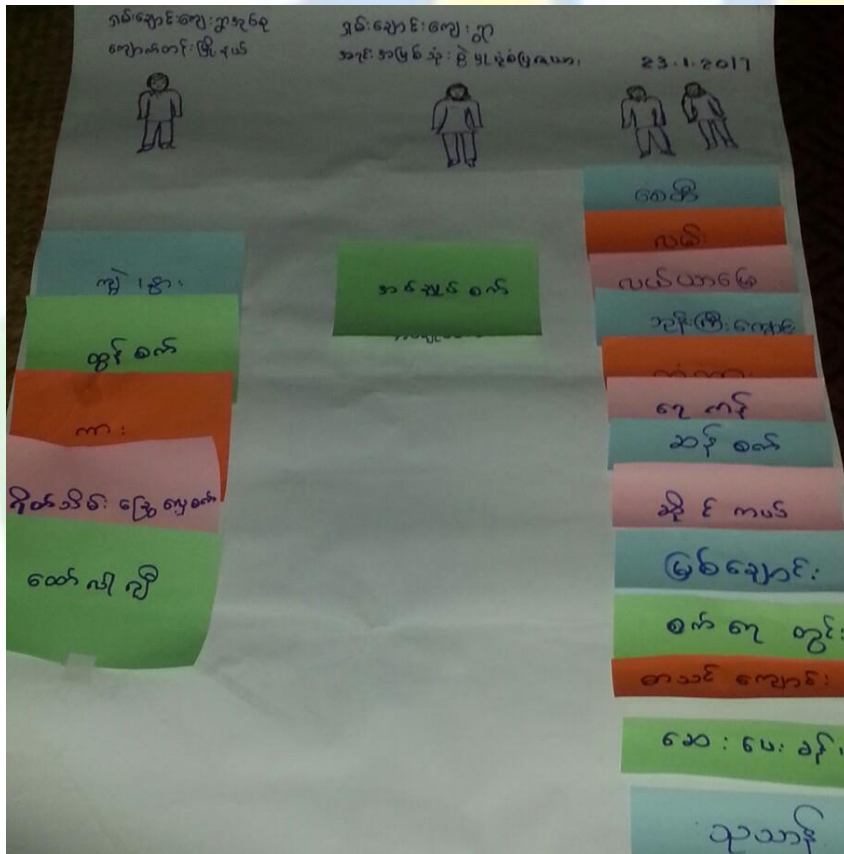 ရှမ်းချောင်းကျေးရွာအုပ်စု
ကျောက်တန်းမြို့နယ်
ရှမ်းချောင်းကျေးရွာ
23.1.2017
ကျွဲ၊နွား
ထွန်စက်
ကား
ရိတ်သိမ်းခြွေလှေ့စက်
ထော်လါဂျီ
အပ်ချုပ်စက်
စေတီ
လမ်း
လယ်ယာမြေ
ဘုန်းကြီးကျောင်း
ရေကန်
ဆန်စက်
ဆိုင်ကယ်
မြစ်ချောင်း
စက်ရေတွင်း
စာသင်ကျောင်း
ဆေးပေးခန်း
သုသာန်